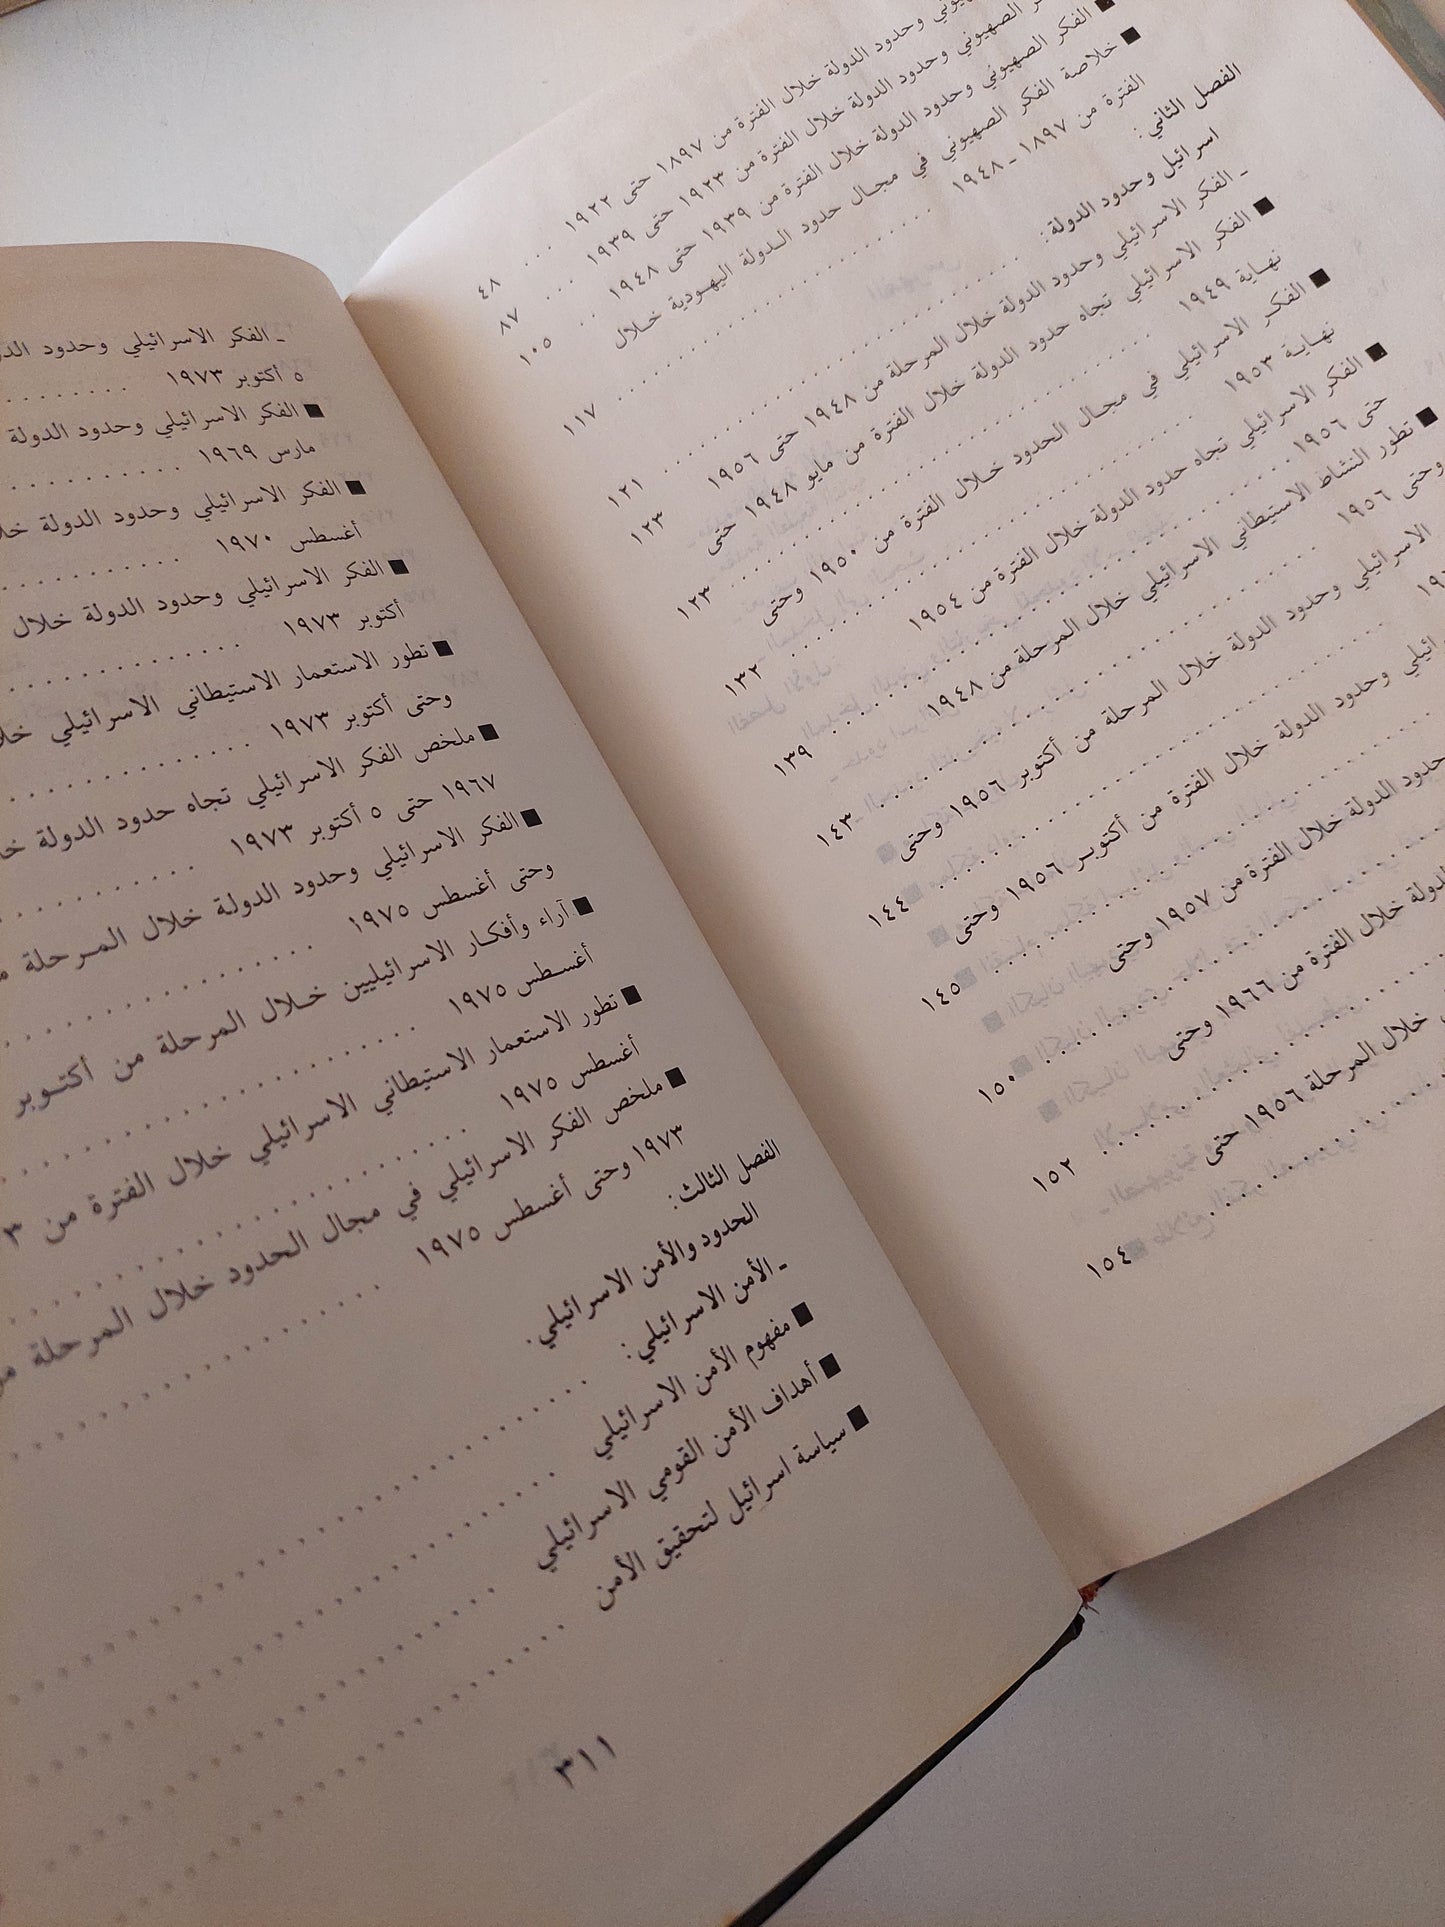 وحدود الدولة خلال الفترة من ١٨٩٧ حتى ١٩٢٢ . . . ٤٨
الصهيوني وحدود الدولة خلال الفترة من ١٩٢٣ حتى ١٩٣٩ . . . ٨٧
■ الفكر الصهيوني وحدود الدولة خلال الفترة من ١٩٣٩ حتى ١٩٤٨ . . ١٠٥
■ خلاصة الفكر الصهيوني في مجال حدود الدولة اليهودية خلال
الفترة من ١٨٩٧ - ١٩٤٨ . . . . . . . . . . ١١٧
الفصل الثاني:
اسرائيل وحدود الدولة: . . . . . . . . . . ١٢١
- الفكر الاسرائيلي وحدود الدولة خلال المرحلة من ١٩٤٨ حتى ١٩٥٦ . ١٢٣
■ الفكر الاسرائيلي تجاه حدود الدولة خلال الفترة من مايو ١٩٤٨ حتى
نهاية ١٩٤٩ . . . . . . . . . . ١٢٣
■ الفكر الاسرائيلي في مجال الحدود خلال الفترة من ١٩٥٠ وحتى
نهاية ١٩٥٣ . . . . . . . . . . ١٣٢
■ الفكر الاسرائيلي تجاه حدود الدولة خلال الفترة من ١٩٥٤
حتى ١٩٥٦ . . . . . . . . . . ١٣٩
■ تطور النشاط الاستيطاني الاسرائيلي خلال المرحلة من ١٩٤٨
وحتى ١٩٥٦ . . . . . . . . . . ١٤٣
الاسرائيلي وحدود الدولة خلال المرحلة من أكتوبر ١٩٥٦ وحتى
. . . . . . . . . . ١٤٤
وحدود الدولة خلال الفترة من أكتوبر ١٩٥٦ وحتى
. . . . . . . . . . ١٤٥
حدود الدولة خلال الفترة من ١٩٥٧ وحتى
. . . . . . . . . . ١٥٠
الدولة خلال الفترة من ١٩٦٦ وحتى
. . . . . . . . . . ١٥٢
خلال المرحلة ١٩٥٦ حتى
. . . . . . . . . . ١٥٤
- الفكر الاسرائيلي وحدود
٥ أكتوبر ١٩٧٣ . . . . . . . . . .
■ الفكر الاسرائيلي وحدود الدولة
مارس ١٩٦٩ . . . . . . . . . .
■ الفكر الاسرائيلي وحدود الدولة
أغسطس ١٩٧٠ . . . . . . . . . .
■ الفكر الاسرائيلي وحدود الدولة خلال
أكتوبر ١٩٧٣ . . . . . . . . . .
■ تطور الاستعمار الاستيطاني الاسرائيلي
وحتى أكتوبر ١٩٧٣ . . . . . . . . . .
■ ملخص الفكر الاسرائيلي تجاه حدود الدولة
١٩٦٧ حتى ٥ أكتوبر ١٩٧٣ . . . . . . . . . .
■ الفكر الاسرائيلي وحدود الدولة خلال المرحلة
وحتى أغسطس ١٩٧٥ . . . . . . . . . .
■ آراء وأفكار الاسرائيليين خلال المرحلة من أكتوبر
أغسطس ١٩٧٥ . . . . . . . . . .
■ تطور الاستعمار الاستيطاني الاسرائيلي خلال الفترة من
أغسطس ١٩٧٥ . . . . . . . . . .
■ ملخص الفكر الاسرائيلي في مجال الحدود خلال المرحلة
١٩٧٣ وحتى أغسطس ١٩٧٥ . . . . . . . . . .
الفصل الثالث:
الحدود والأمن الاسرائيلي.
- الأمن الاسرائيلي: . . . . . . . . . .
■ مفهوم الأمن الاسرائيلي . . . . . . . . . .
■ أهداف الأمن القومي الاسرائيلي . . . . . . . . . .
■ سياسة اسرائيل لتحقيق الأمن . . . . . . . . . .
٣١١